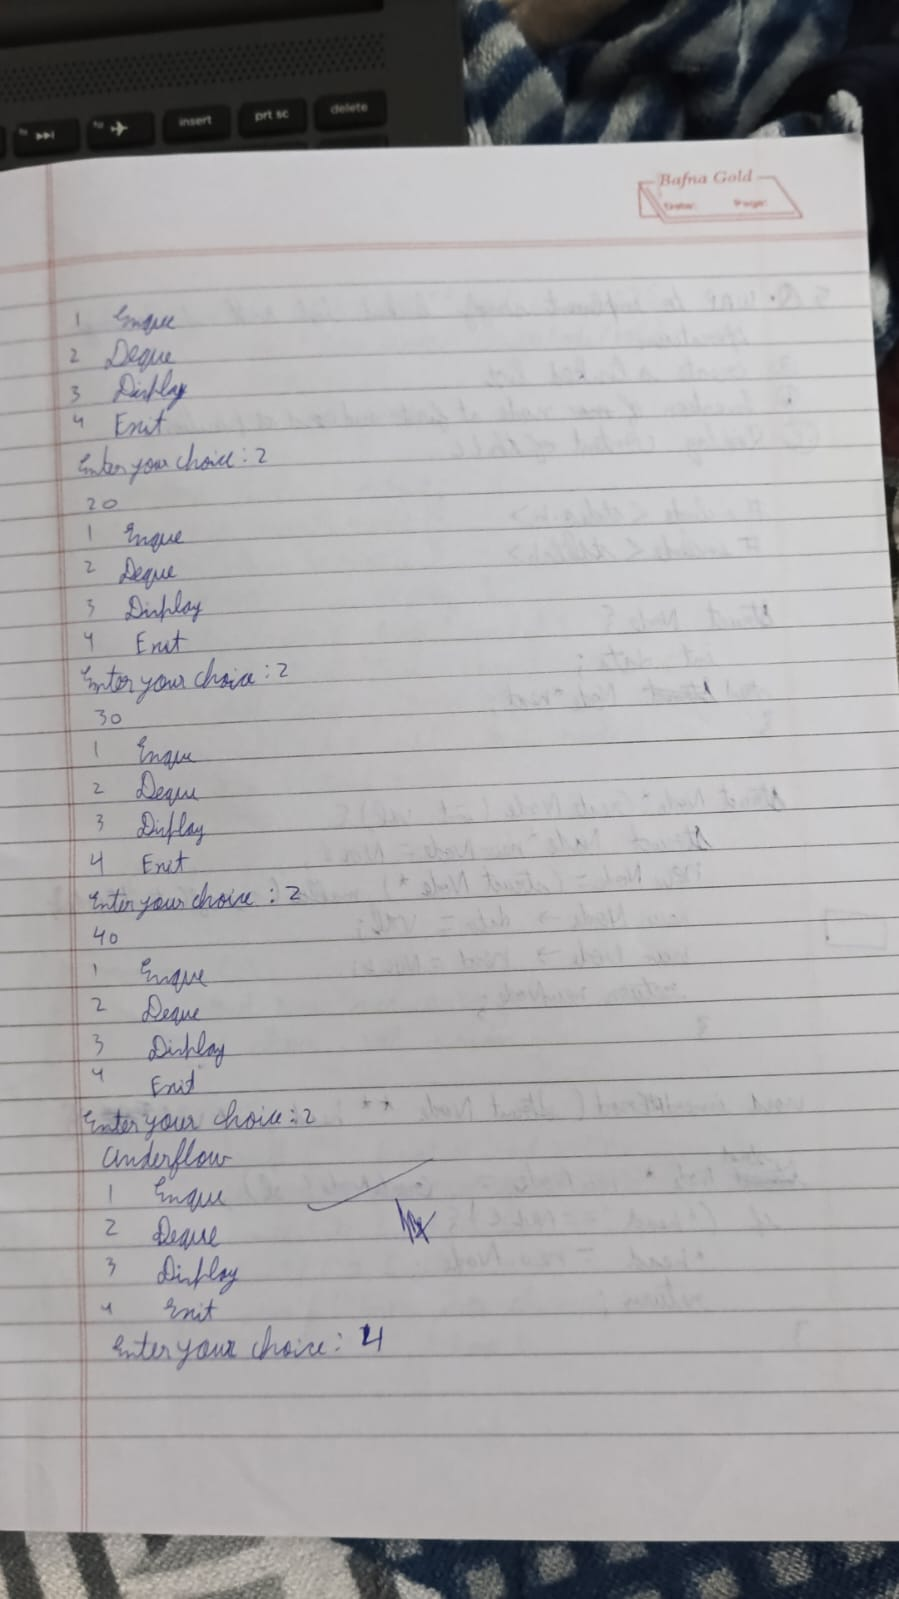 insert
prt sc
delete
Bafna Gold
Date: Page:
1 Enque
2 Deque
3 Display
4 Exit
Enter your choice : 2
20
1 Enque
2 Deque
3 Display
4 Exit
Enter your choice : 2
30
1 Enque
2 Deque
3 Display
4 Exit
Enter your choice : 2
40
1 Enque
2 Deque
3 Display
4 Exit
Enter your choice : 2
Underflow
1 Enque
2 Deque
3 Display
4 Exit
Enter your choice : 4